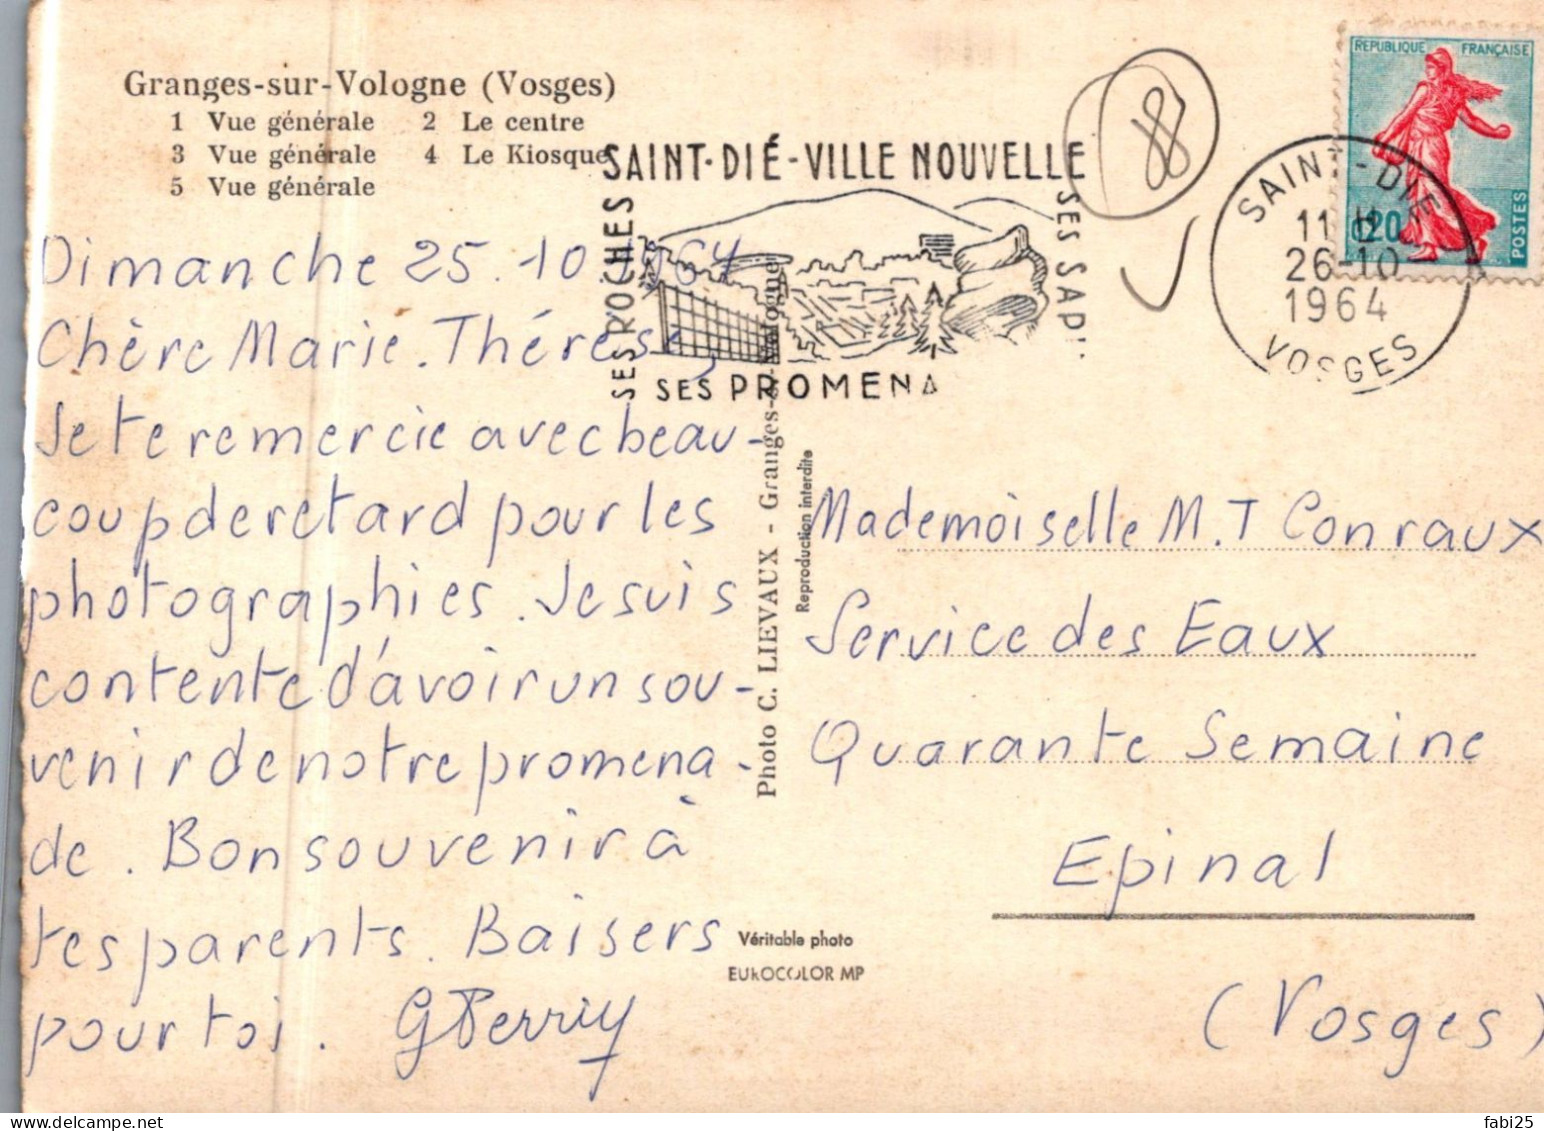 Granges-sur-Vologne (Vosges)
1 Vue générale 2 Le centre
3 Vue générale 4 Le Kiosque
5 Vue générale
SAINT-DIÉ-VILLE NOUVELLE
SES ROCHES
SES SAPI
SES PROMENA
REPUBLIQUE FRANÇAISE
0,20
POSTES
SAINT-DIE
11 H
26-10
1964
VOSGES
88
Dimanche 25.10.1964
Chère Marie.Thérèse,
Je te remercie avec beau-
coup de retard pour les
photographies. Je suis
contente d'avoir un sou-
venir de notre promena-
de. Bon souvenir à
tes parents. Baisers
pour toi. GPerriy
Photo C. LIEVAUX - Granges-sur-Vologne
Reproduction interdite
Mademoiselle M.T Conraux
Service des Eaux
Quarante Semaine
Epinal
(Vosges)
Véritable photo
EUROCOLOR MP
fabi25